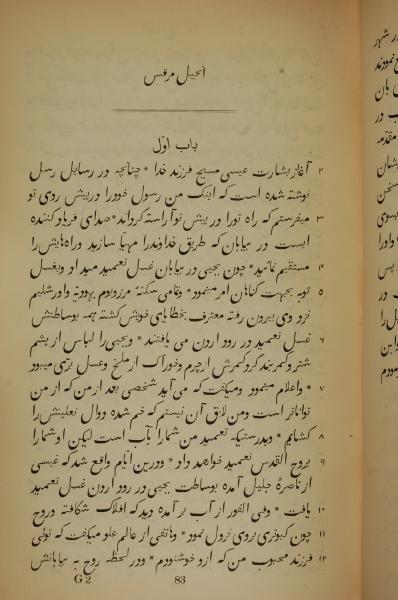 انجیل مرقس
باب اوّل
۲ آغاز بشارت عیسی مسیح فرزند خدا * چنانچه در رسایل رسل
نوشته شده است که اینک من رسول خودرا درپیش روی تو
۳ میفرستم که راه تورا در پیش تو آراسته گرداند * صدای فریادکننده
ایست در بیابان که طریق خداوندرا مهیّا سازید وراهایش را
۴ مستقیم نمائید * چون یحیی در بیابان غسل تعمید میداد وبغسل
۵ توبه بجهت گناهان امر مینمود * وتمامی سکنهٔ مرزوبوم یهودیّه واورشلیم
نزد وی بیرون رفته معترف بخطایای خویش گشته همه بوساطتش
۶ غسل تعمید در رود اردن می یافتند * ویحیی را لباس از پشم
شتر وکمربند گرد کمرش از چرم وخوراک از ملخ وعسل برّی میبود
۷ * واعلام مینمود ومیگفت که می آید شخصی بعد از من که از من
تواناتر است ومن لایق آن نیستم که خم شده دوال نعلینش را
۸ کشایم * وبدرستیکه تعمید من شمارا بآب است لیکن او شمارا
۹ بروح القدس تعمید خواهد داد * ودرین ایّام واقع شد که عیسی
از ناصرهٔ جلیل آمده بوساطت یحیی در رود اردن غسل تعمید
۱۰ یافت * وفی الفور از آب برآمده دید که افلاک شکافته وروح
۱۱ چون کبوتری بروی نزول نمود * وهاتفی از عالم علو میگفت که توئی
۱۲ فرزند محبوب من که ازو خوشنودم * ودر لحظه روح به بیابانش
G 2 83